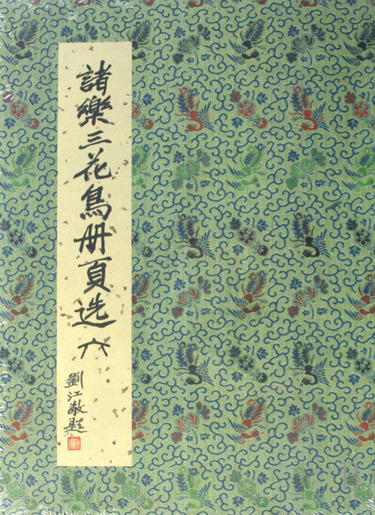 諸樂三花鳥册頁选六
劉江敬題